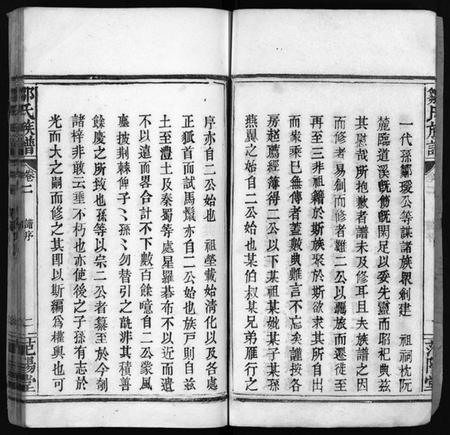 鄒氏族譜
一代孫鄒璦公等謀諸族眾創建　祖祠枕阮
麓臨道溪既飭既閑足以妥先靈而昭祀典茲
其慰哉所抱歉者譜未及修耳且夫族譜之因
而修者易創而修者難二公以驫旅而遷徒至
再至三非祖籍於斯族聚於斯欲求其所自出
而來乘已無傳者蓋數典難言不忘矣謹按各
房趙薦經簿得二公以下某祖某妣某子某孫
燕翼之始自二公始也某伯叔某兄弟雁行之
范陽堂
序亦自二公始也　祖塋載始淸化以及各處
正狐首而試馬鬣亦自二公始也族戶則自益
土至澧土及秦蜀等處星羅碁布不以近而遺
不以遠而畧合計不下數百餘噫自二公蒙風
塵披荆棘俾子〻孫〻勿替引之詵非其積善
餘慶之所致也孫等以宗二公者纂至於今剞
諸梓非敢云垂不朽也亦使後之子孫有志於
光而大之嗣而修之其即以斯編爲權輿也可
鄒氏族譜
卷一
譜序
范陽堂